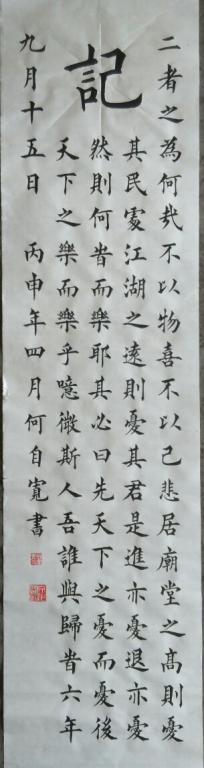 記
二者之為何哉不以物喜不以己悲居廟堂之高則憂
其民處江湖之遠則憂其君是進亦憂退亦憂
然則何旹而樂耶其必曰先天下之憂而憂後
天下之樂而樂乎噫微斯人吾誰與歸旹六年
九月十五日 丙申年四月何自寬書